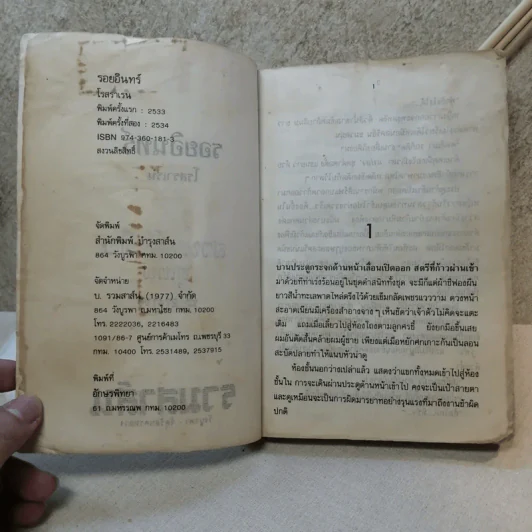 รอยอินทร์
โรสราเรน
พิมพ์ครั้งแรก : 2533
พิมพ์ครั้งที่สอง : 2534
ISBN 974-360-181-3
สงวนลิขสิทธิ์
จัดพิมพ์
สำนักพิมพ์ บำรุงสาส์น
864 วังบูรพา กทม. 10200
จัดจำหน่าย
บ. รวมสาส์น (1977) จำกัด
864 วังบูรพา ถ.มหาไชย กทม. 10200
โทร. 2222036, 2216483
1091/86-7 ศูนย์การค้าเมโทร ถ.เพชรบุรี 33
กทม. 10400 โทร. 2531489, 2537915
พิมพ์ที่
อักษรพิทยา
61 ถ.แพร่งนรา กทม. 10200
1
1
บานประตูกระจกด้านหน้าเลื่อนเปิดออก สตรีที่ก้าวผ่านเข้า
มาด้วยทีท่าเร่งร้อนอยู่ในชุดดำสนิททั้งชุด จะมีก็แต่ผ้าชีฟองผืน
ยาวสีน้ำทะเลพาดไหล่ตรึงไว้ด้วยเข็มกลัดเพชรแวววาม ดวงหน้า
สะอาดเนียนมีเครื่องสำอางจาง ๆ
เดิม แถมเมื่อเลี้ยวไปสู่ห้องโถงตามลูกศรชี้
ผมอันดัดสั้นคล้ายผมผู้ชาย เพียงแต่เมื่อหยักศกเกาะกันเป็นลอน
สะบัดปลายทำให้แนบหัวน่าดู
ห้องชั้นนอกว่างเปล่าแล้ว แสดงว่าแขกทั้งหมดเข้าไปสู่ห้อง
ชั้นใน การจะเดินผ่านประตูด้านหน้าเข้าไป คงจะเป็นเป้าสายตา
และดูเหมือนจะเป็นการผิดมารยาทอย่างรุนแรงที่มาถึงงานช้าผิด
ปกติ